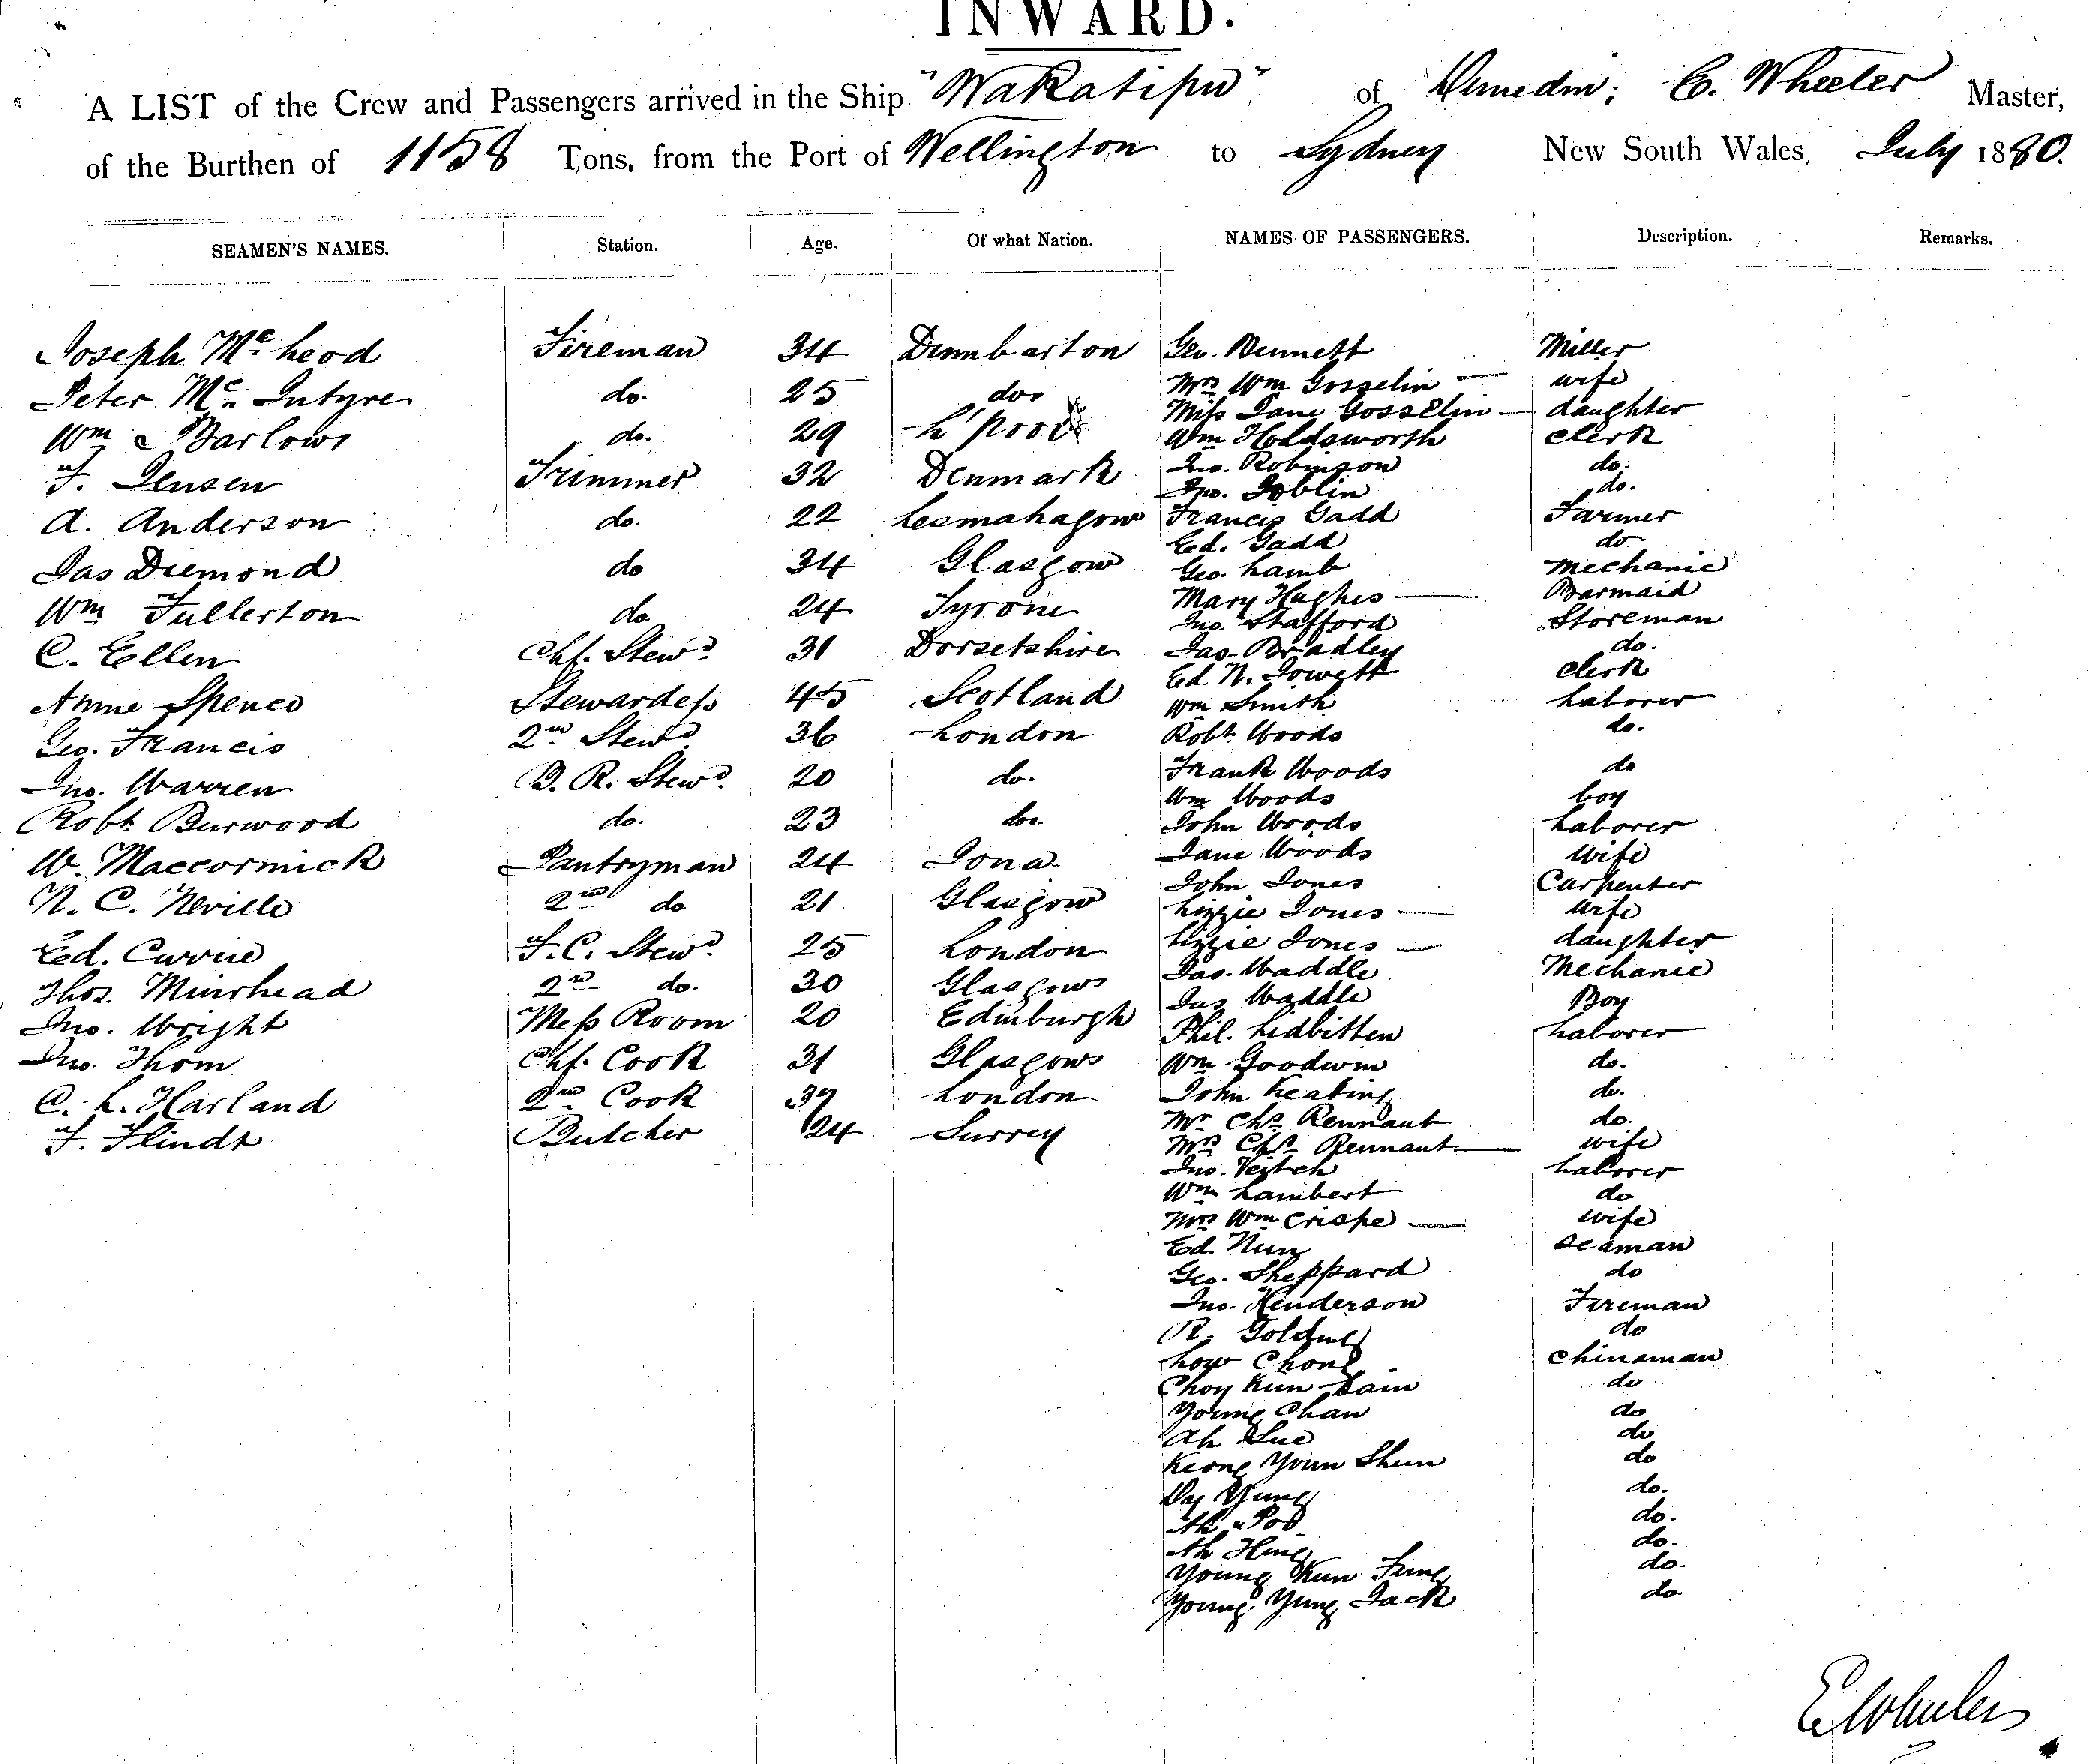 INWARD.
A LIST of the Crew and Passengers arrived in the Ship "Wakatipu" of Dunedin; E. Wheeler Master,
of the Burthen of 1158 Tons, from the Port of Wellington to Sydney New South Wales, July 1880.
SEAMEN'S NAMES. Station. Age. Of what Nation. NAMES OF PASSENGERS. Description. Remarks.
Joseph McLeod Fireman 34 Dumbarton Geo. Bennett Miller
Peter McIntyre do. 25 do. Mrs Wm Gosselin — wife
Miss Jane Gosselin — daughter
Wm Barlow do. 29 L'pool Wm Holdsworth Clerk
F. Jensen Trimmer 32 Denmark Jno. Robinson do.
Jno. Joblin do.
A. Anderson do. 22 Lesmahagow Francis Gadd Farmer
Ed. Gadd do
Jas Diemond do 34 Glasgow Geo. Lamb Mechanic
Mary Hughes — Barmaid
Wm Fullerton do 24 Tyrone Jno. Stafford Storeman
C. Ellen Chf. Stewd 31 Dorsetshire Jas. Bradley do.
Ed. N. Jowett Clerk
Annie Spence Stewardess 45 Scotland Wm Smith Laborer
Geo. Francis 2nd Stewd 36 London Robt Woods do.
Jno. Warren B. R. Stewd. 20 do. Frank Woods do
Wm Woods boy
Robt Burwood do. 23 do. John Woods Laborer
W. Maccormick Pantryman 24 Iona Jane Woods Wife
John Jones Carpenter
N. C. Neville 2nd do 21 Glasgow Lizzie Jones — Wife
Ed. Currie F. C. Stewd. 25 London Lizzie Jones — daughter
Jas. Waddle Mechanic
Thos. Muirhead 2nd do. 30 Glasgow Jas Waddle Boy
Jno. Wright Mess Room 20 Edinburgh Phil. Lidbitten Laborer
Jno. Thom Chf. Cook 31 Glasgow Wm Goodwin do.
C. L. Harland 2nd Cook London John Keating do.
F. Flindt Butcher 24 Surrey Mr Chs Rennant do.
Mrs Chs Rennant — wife
Jno. Veitch Laborer
Wm Lambert do
Mrs Wm Crispe — wife
Ed. Nun Seaman
Geo. Sheppard do
Jno. Henderson Fireman
R. Golding do
Low Chong Chinaman
Choy Kum do
Young Chan do
Ah Sue do
Keong Youn Shun do
Yung do.
Ah Poo do.
Ah Hing do.
Young Kun Fung do.
Young Yung Jack do
E Wheeler